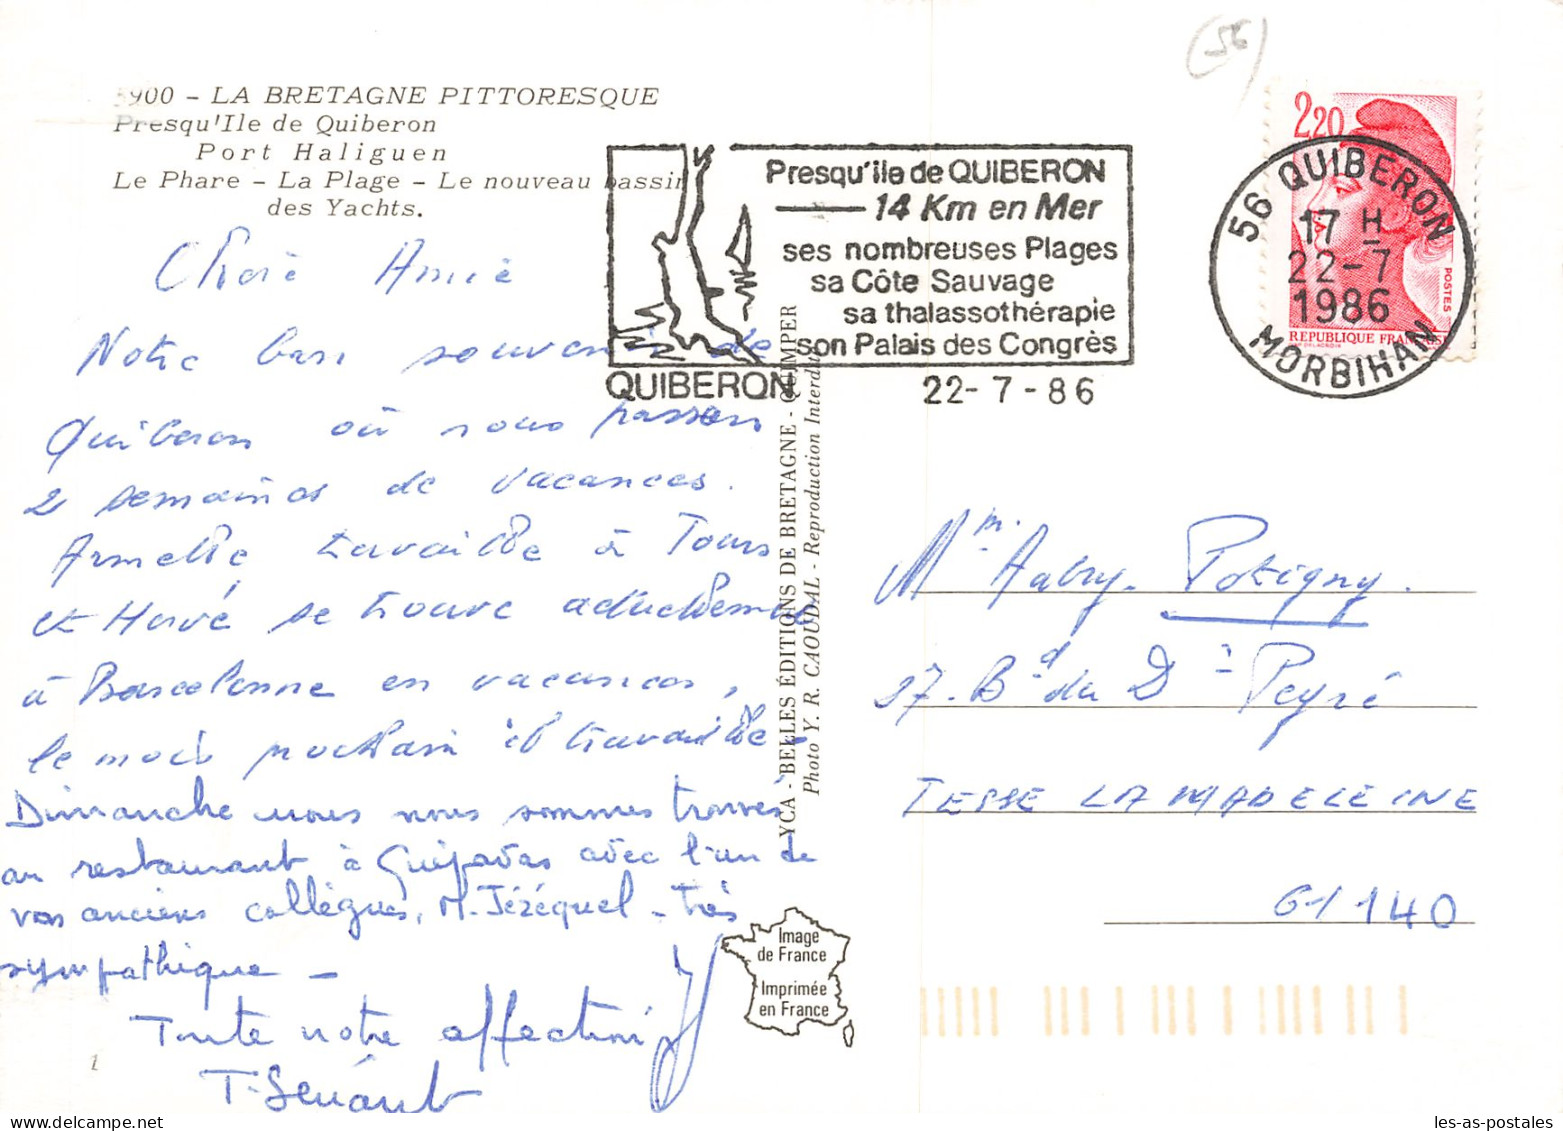 (56)
5900 - LA BRETAGNE PITTORESQUE
Presqu'Ile de Quiberon
Port Haliguen
Le Phare - La Plage - Le nouveau bassin
des Yachts.
Presqu'île de QUIBERON
14 Km en Mer
ses nombreuses Plages
sa Côte Sauvage
sa thalassothérapie
son Palais des Congrès
QUIBERON
22-7-86
2,20
POSTES
REPUBLIQUE FRANÇAISE
56 QUIBERON
17 H
22-7
1986
MORBIHAN
Chère Amie
Notre bon souvenir de
Quiberon où nous passons
2 semaines de vacances.
Armelle travaille à Tours
et Hervé se trouve actuellement
à Barcelonne en vacances,
le mois prochain il travaille -
Dimanche nous nous sommes trouvés
au restaurant à Guipavas avec l'un de
vos anciens collègues, M. Jézéquel - très
sympathique -
Toute notre affection
T. Senant
YCA - BELLES ÉDITIONS DE BRETAGNE - QUIMPER
Photo Y. R. CAOUDAL - Reproduction Interdite
Mme Aubry. Potigny.
27. Bd du Dr Peyré
TESSE LA MADELEINE
61140
Image
de France
Imprimée
en France
1
les-as-postales